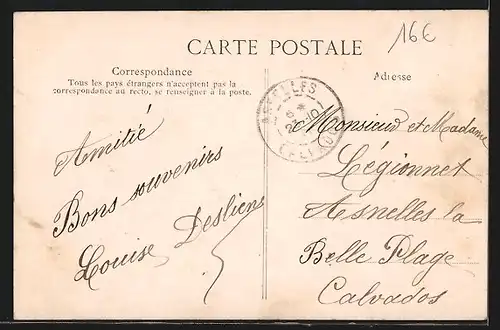 16€
CARTE POSTALE
Correspondance
Tous les pays étrangers n'acceptent pas la
correspondance au recto, se renseigner à la poste.
Adresse
Amitié
Bons souvenirs
Louise Desliens
Monsieur et Madame
Légionnet
Asnelles la
Belle Plage
Calvados